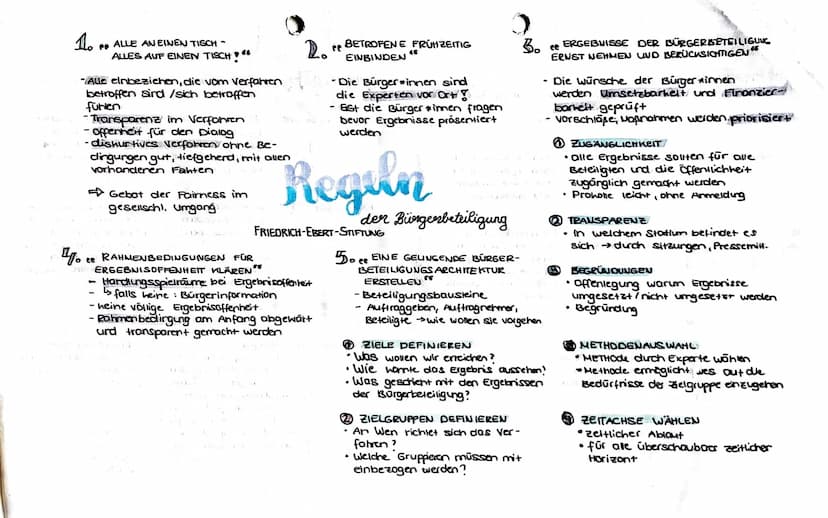 1. „ ALLE AN EINEN TISCH -
ALLES AUF EINEN TISCH!"
- Alle einbeziehen, die vom Verfahren
betroffen sind / sich betroffen
fühlen
- Transparenz im Verfahren
- offenheit für den Dialog
- diskursives Verfahren ohne Be-
dingungen gut, tiefgehend, mit allen
vorhandenen Fakten
⇨ Gebot der Fairness im
gesellschl. Umgang
2. „ BETROFENE FRÜHZEITIG
EINBINDEN"
- Die Bürger*innen sind
die Experten vor Ort!
- Est die Bürger*innen fragen
bevor Ergebnisse präsentiert
werden
3. „ ERGEBNISSE DER BÜRGERBETEILIGUNG
ERNST NEHMEN UND BERÜCKSICHTIGEN"
- Die Wünsche der Bürger*innen
werden Umsetzbarkeit und Finanzier-
barkeit geprüft
- Vorschläge, Maßnahmen werden priorisiert
① ZUGÄNGLICHKEIT
• alle Ergebnisse sollten für alle
Beteiligten und die Öffentlichkeit
zugänglich gemacht werden
• leicht, ohne Anmeldung
② TRANSPARENZ
• In welchem Stadium befindet es
sich → durch Sitzungen, Pressemitt.
③ BEGRÜNDUNGEN
• Offenlegung warum Ergebnisse
umgesetzt / nicht umgesetzt werden
• Begründung
Regeln
der Bürgerbeteiligung
FRIEDRICH-EBERT-STIFTUNG
4. „ RAHMENBEDINGUNGEN FÜR
ERGEBNISOFFENHEIT KLÄREN"
- Handlungsspielräume bei Ergebnisoffenheit
- ↳ falls keine: Bürgerinformation
- keine völlige Ergebnisoffenheit
- Rahmenbedingung am Anfang abgeklärt
und transparent gemacht werden
5. „ EINE GELINGENDE BÜRGER-
BETEILIGUNGSARCHITEKTUR
ERSTELLEN"
- Beteiligungsbausteine
- Auftraggeber, Auftragnehmer,
Beteiligte → wie wollen sie vorgehen
① ZIELE DEFINIEREN
• Was wollen wir erreichen?
• Wie könnte das Ergebnis aussehen?
• Was geschieht mit den Ergebnissen
der Bürgerbeteiligung?
② ZIELGRUPPEN DEFINIEREN
• An Wen richtet sich das Ver-
fahren?
• Welche Gruppieren müssen mit
einbezogen werden?
③ METHODENAUSWAHL
• Methode durch Experte wählen
• Methode ermöglicht es auf die
Bedürfnisse der Zielgruppe einzugehen
④ ZEITACHSE WÄHLEN
• zeitlicher Ablauf
• für alle überschaubarer zeitlicher
Horizont